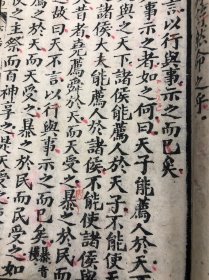 言以行與事示之而已矣
與事示之者如之何曰天子能薦人於天
與之天下諸侯能薦人於天子不能使天
諸侯大夫能薦人於諸侯不能使諸侯與
昔者堯薦舜於天而天受之暴之於民而
故曰天不言以行與事示之而已矣 暴音
薦之於天而天受之暴之於民而民受之如
之主祭而百神享之是天受